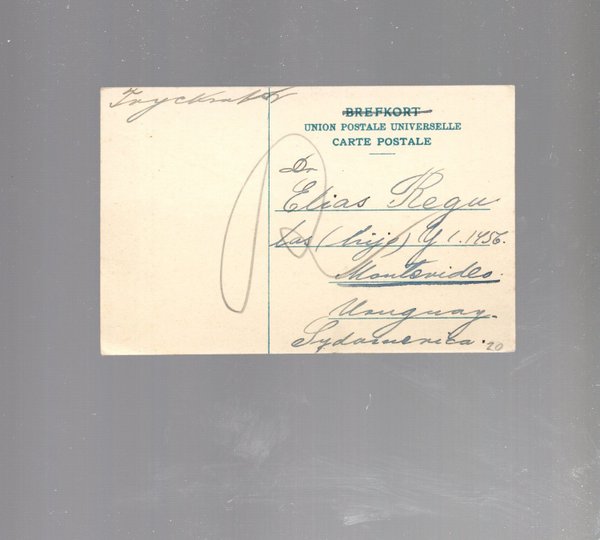 Trycksaker
BREFKORT
UNION POSTALE UNIVERSELLE
CARTE POSTALE
Dr
Elias Regu
las (hijo) Y 1.1456.
Montevideo.
Uruguay.
Sydamerica.
20